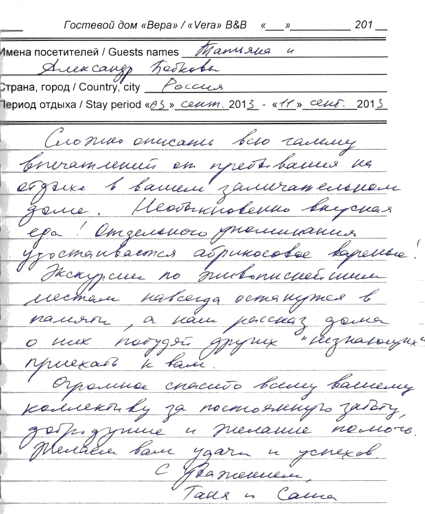 Гостевой дом «Вера» / «Vera» B&B «___»____________ 201__
Имена посетителей / Guests names Татьяна и
Александр Бобковы
Страна, город / Country, city Россия
Период отдыха / Stay period «03» сент. 2013 - «11» сент. 2013
Сложно описать всю гамму
впечатлений от пребывания на
отдыхе в вашем замечательном
доме. Необыкновенно вкусная
еда! Отдельного упоминания
удостаивается абрикосовое варенье!
Экскурсии по живописнейшим
местам навсегда останутся в
памяти, а наш рассказ дома
о них побудят других "незнающих"
приехать к вам.
Огромное спасибо всему вашему
коллективу за постоянную заботу,
добродушие и желание помочь.
Желаем вам удачи и успехов.
С уважением,
Таня и Саша